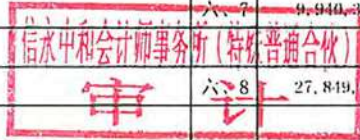 六、7 9,940,3
信永中和会计师事务所（特殊普通合伙）
六、8 27,849,
审计